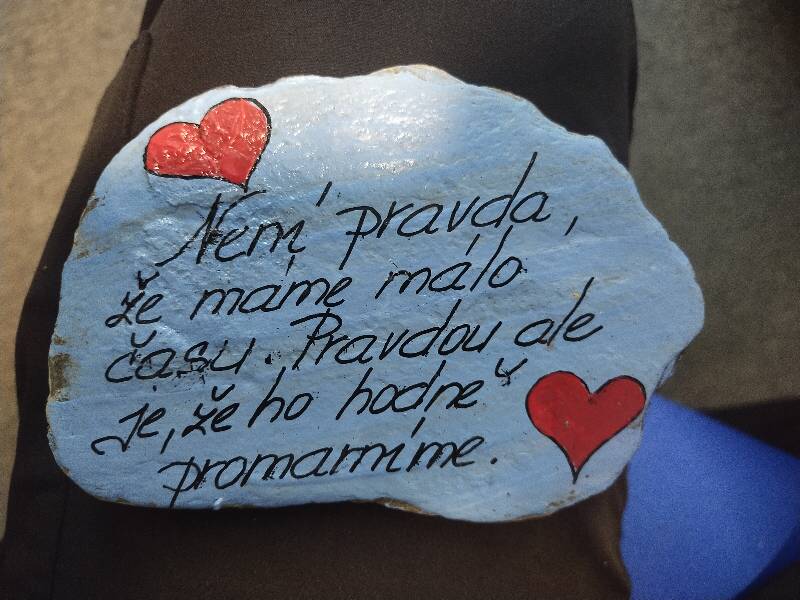 Není pravda,
že máme málo
času. Pravdou ale
je, že ho hodně
promarníme.